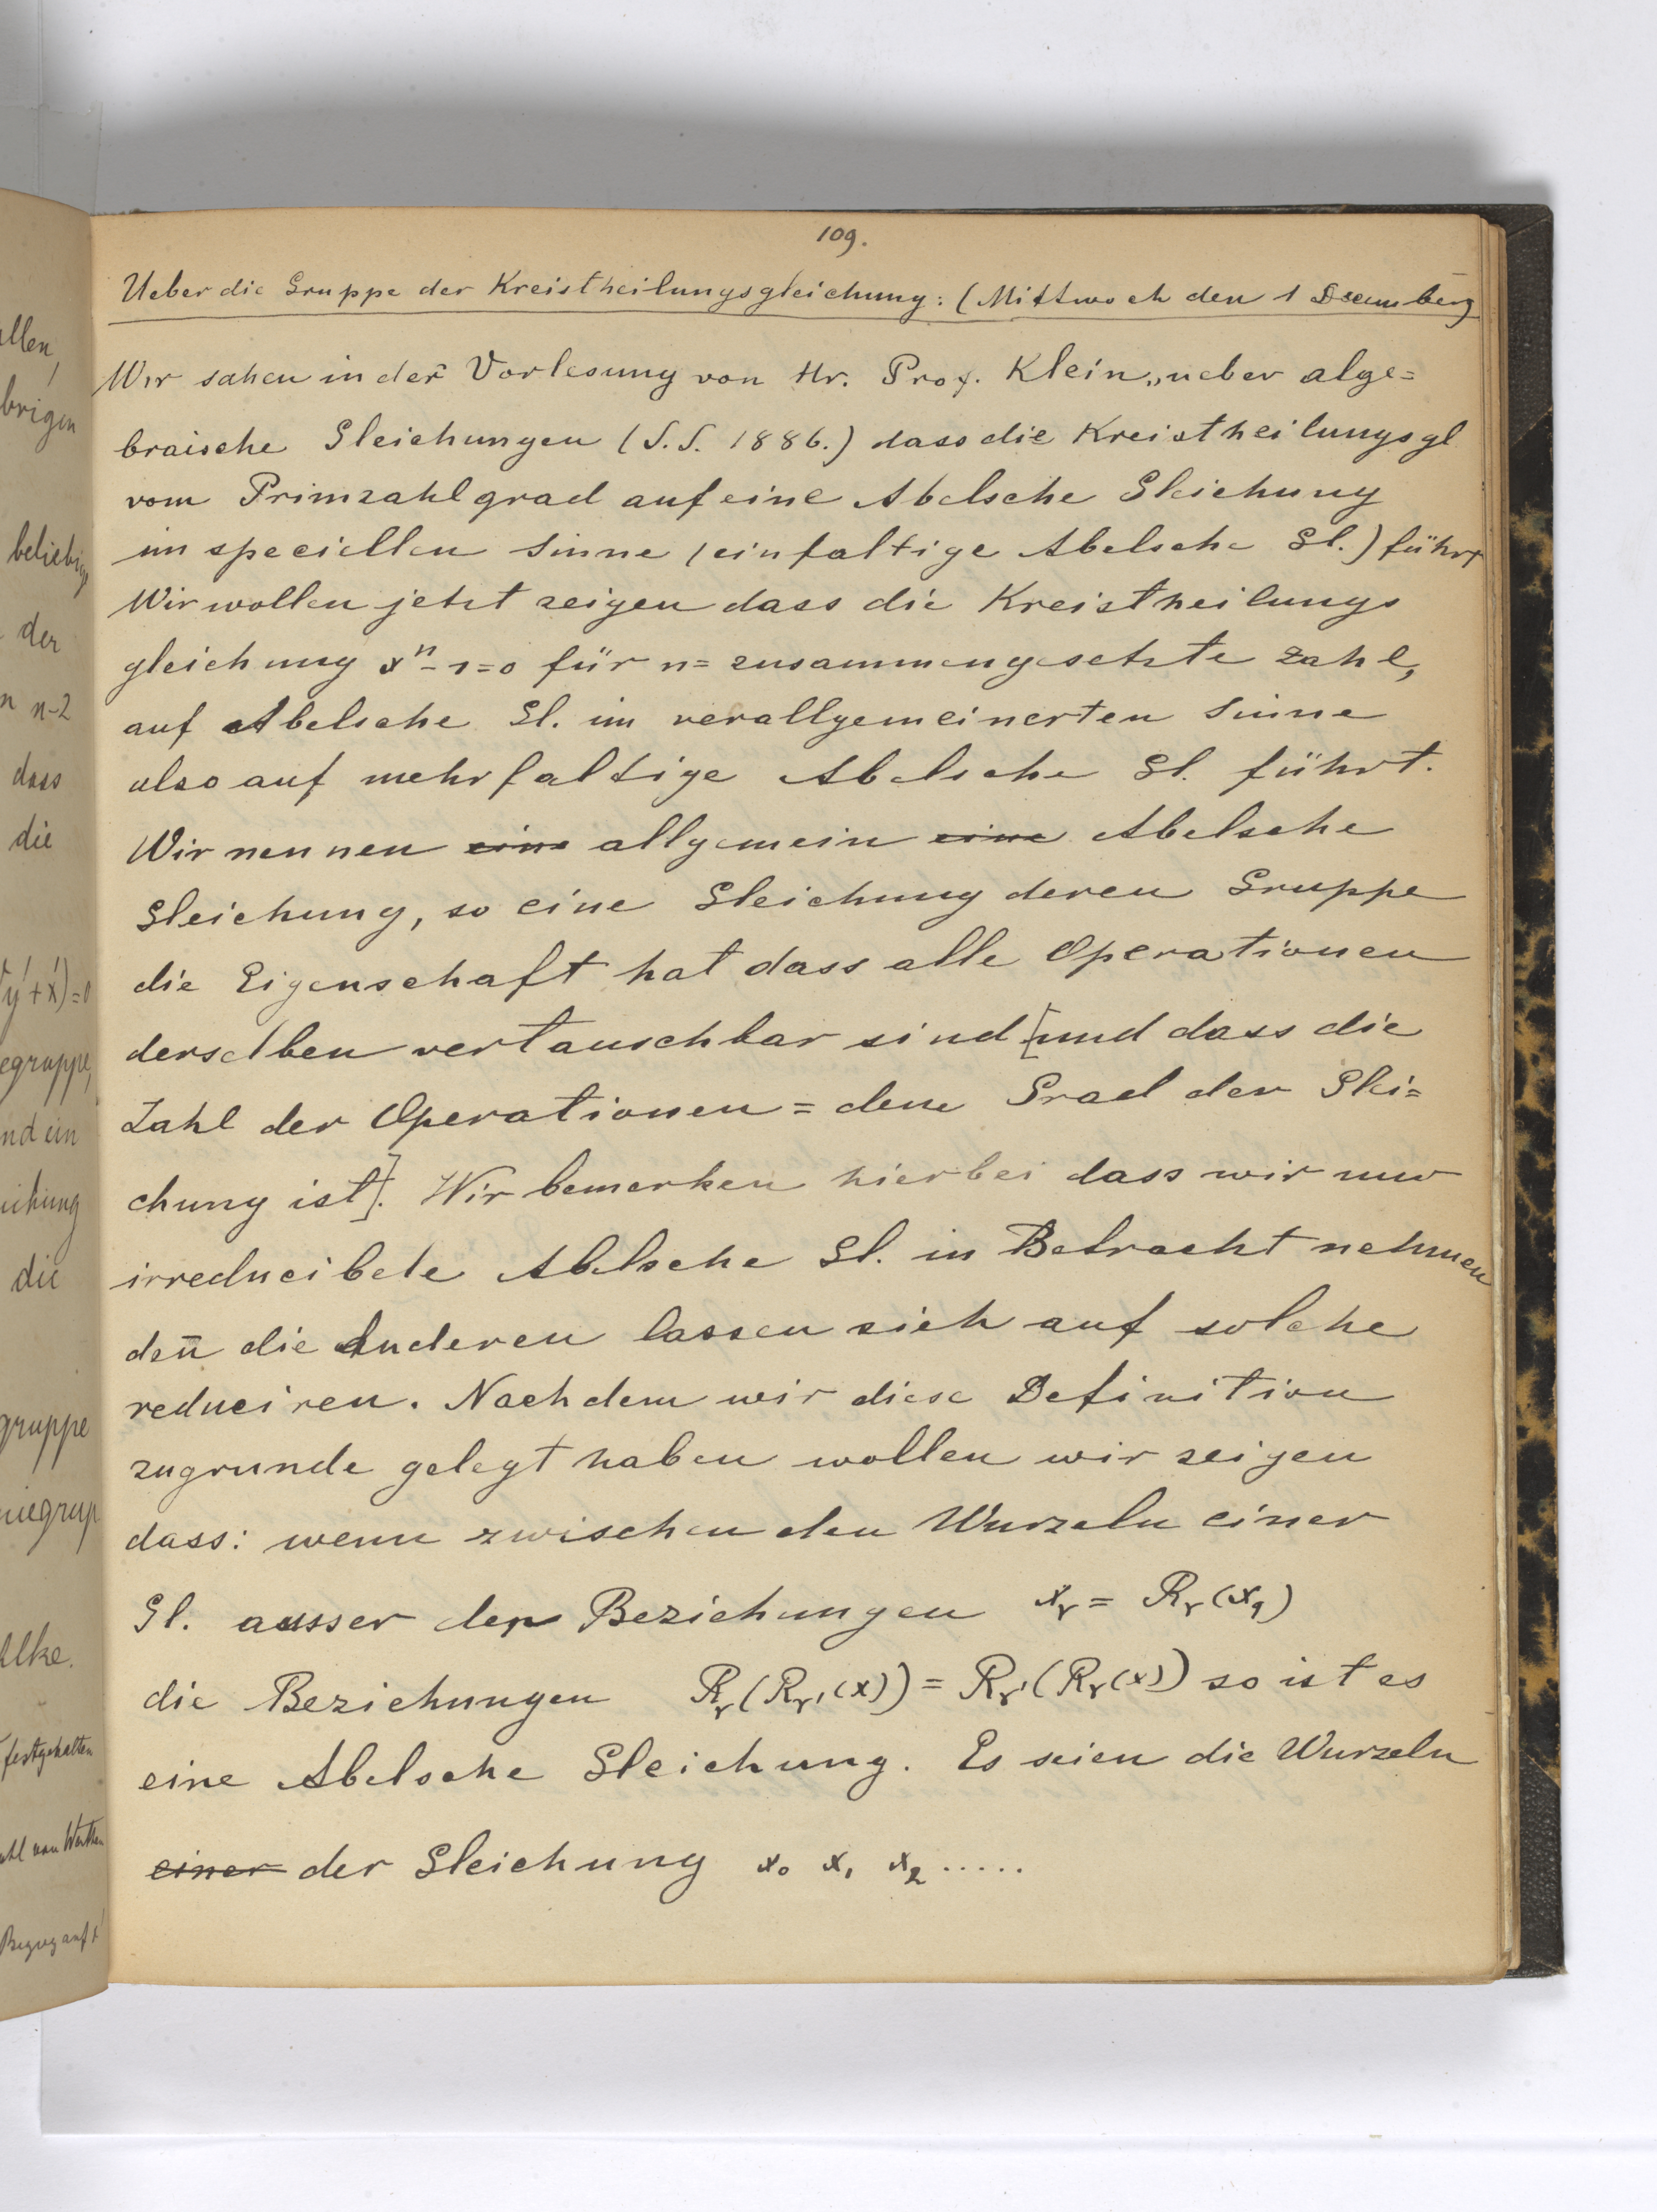 109.
Ueber die Gruppe der Kreistheilungsgleichung: (Mittwoch den 1 December)
Wir sahen in der Vorlesung von Hr. Prof. Klein „ueber alge=
braische Gleichungen (S.S. 1886.) dass die Kreistheilungsgl
vom Primzahlgrad auf eine Abelsche Gleichung
im speciellen Sinne (einfaltige Abelsche Gl.) führt
Wir wollen jetzt zeigen dass die Kreistheilungs
gleichung xⁿ-1=0 für n= zusammengesetzte Zahl,
auf Abelsche Gl. im verallgemeinerten Sinne
also auf mehrfaltige Abelsche Gl. führt.
Wir nennen eine allgemein eine Abelsche
Gleichung, so eine Gleichung deren Gruppe
die Eigenschaft hat dass alle Operationen
derselben vertauschbar sind [und dass die
Zahl der Operationen = dem Grad der Glei=
chung ist]. Wir bemerken hierbei dass wir nur
irreducibele Abelsche Gl. in Betracht nehmen
den̄ die Anderen lassen sich auf solche
reduciren. Nachdem wir diese Definition
zugrunde gelegt haben wollen wir zeigen
dass: wenn zwischen den Wurzeln einer
Gl. ausser den Beziehungen x_r = R_r(x_1)
die Beziehungen R_r(R_r'(x)) = R_r'(R_r(x)) so ist es
eine Abelsche Gleichung. Es seien die Wurzeln
einer der Gleichung x₀ x₁ x₂ .....
allen,
brigen
beliebige
der
n n-2
dass
die
y'+x')=0
egruppe,
nd ein
eichung
die
gruppe
niegrup
festgehalten
ahl von Werthen
Bezug auf x'